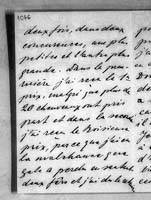 1046
deux fois, dans deux
concurrences, une plus
petite et l'autre plus
grande. Dans la pre-
mière j'ai reçu le 1r
prix, malgré que plus de
20 chevaux ont pris
part et dans la seconde
j'ai reçu le troisième
prix, parce que j'ai eu
la malchance que
deux fois et j'ai